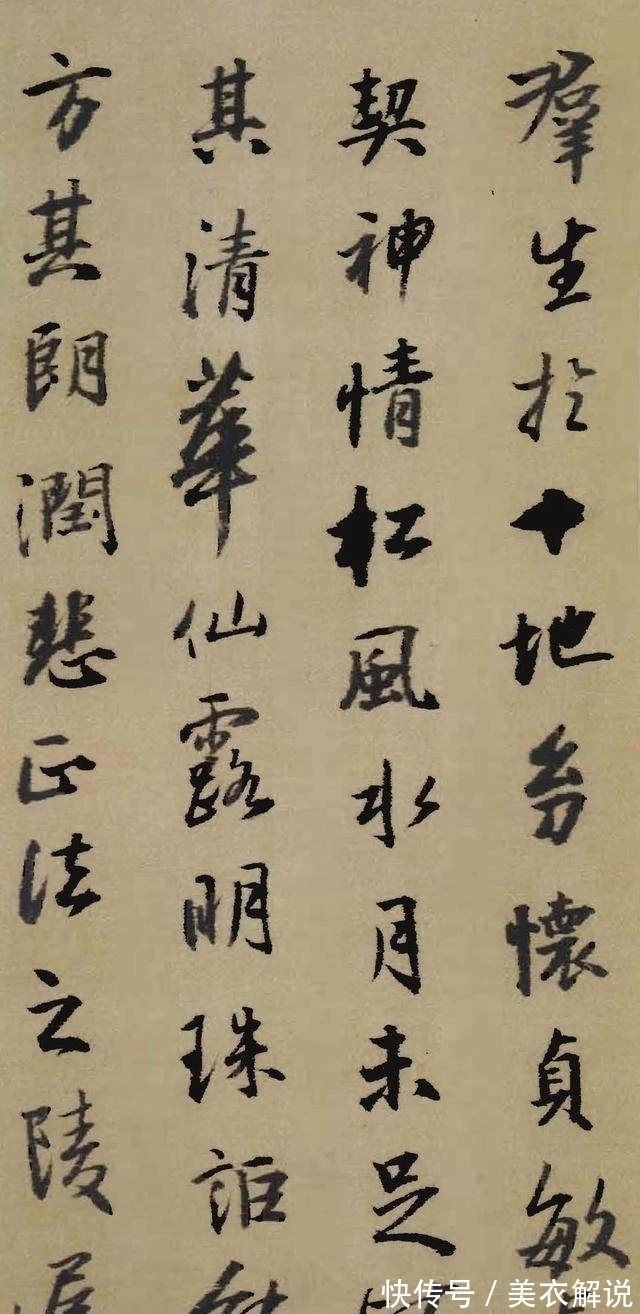 羣生於十地幼懷貞敏
契神情松風水月未足
其清華仙露明珠詎
方其朗潤悲正法之陵
快传号 / 美衣解说